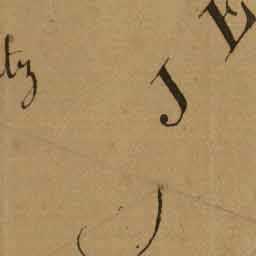 tz
J E